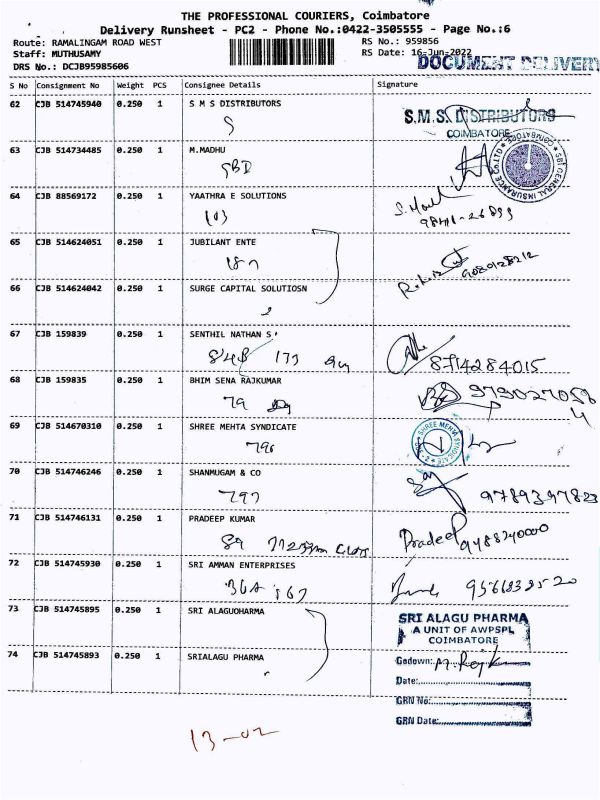 THE PROFESSIONAL COURIERS, Coimbatore
Delivery Runsheet - PC2 - Phone No.:0422-3505555 - Page No.:6
Route: RAMALINGAM ROAD WEST RS No.: 959856
Staff: MUTHUSAMY RS Date: 16-Jun-2022
DRS No.: DCJB95985606 DOCUMENT DELIVERY
S No Consignment No Weight PCS Consignee Details Signature
62 CJB 514745940 0.250 1 S M S DISTRIBUTORS
S.M.S. DISTRIBUTORS
S COIMBATORE
63 CJB 514734485 0.250 1 M.MADHU
SBI GENERAL INSURANCE CO.LTD COIMBATORE
SBI
64 CJB 88569172 0.250 1 YAATHRA E SOLUTIONS
103
65 CJB 514624051 0.250 1 JUBILANT ENTE
187
66 CJB 514624042 0.250 1 SURGE CAPITAL SOLUTIOSN
67 CJB 159839 0.250 1 SENTHIL NATHAN S
173 8714284015
68 CJB 159835 0.250 1 BHIM SENA RAJKUMAR
79
69 CJB 514670310 0.250 1 SHREE MEHTA SYNDICATE
SHREE MEHTA SYNDICATE
70 CJB 514746246 0.250 1 SHANMUGAM & CO
797 9789397823
71 CJB 514746131 0.250 1 PRADEEP KUMAR
89 Pradeep
72 CJB 514745930 0.250 1 SRI AMMAN ENTERPRISES
73 CJB 514745895 0.250 1 SRI ALAGUOHARMA
SRI ALAGU PHARMA
A UNIT OF AWPSPL
COIMBATORE
74 CJB 514745893 0.250 1 SRIALAGU PHARMA
Godown:
Date:
GRN No:
GRN Date:
13-02